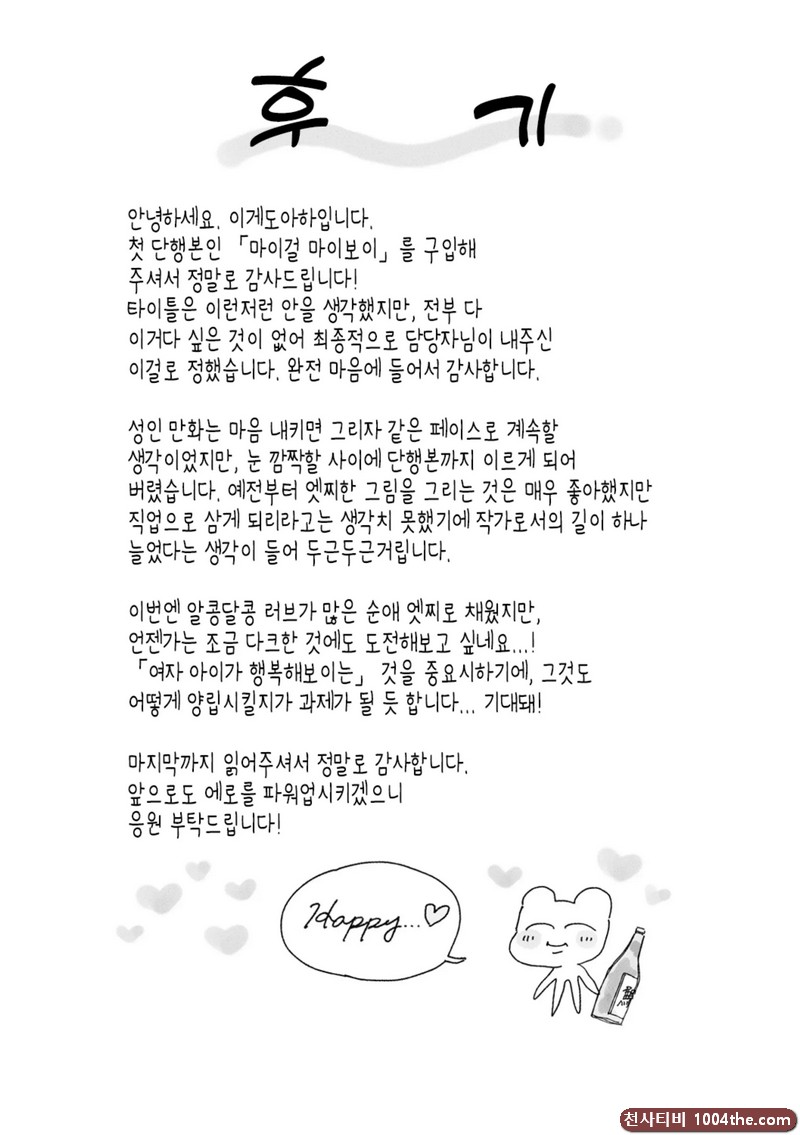 후기
안녕하세요. 이게도아하입니다.
첫 단행본인 「마이걸 마이보이」를 구입해
주셔서 정말로 감사드립니다!
타이틀은 이런저런 안을 생각했지만, 전부 다
이거다 싶은 것이 없어 최종적으로 담당자님이 내주신
이걸로 정했습니다. 완전 마음에 들어서 감사합니다.
성인 만화는 마음 내키면 그리자 같은 페이스로 계속할
생각이었지만, 눈 깜짝할 사이에 단행본까지 이르게 되어
버렸습니다. 예전부터 엣찌한 그림을 그리는 것은 매우 좋아했지만
직업으로 삼게 되리라고는 생각치 못했기에 작가로서의 길이 하나
늘었다는 생각이 들어 두근두근거립니다.
이번엔 알콩달콩 러브가 많은 순애 엣찌로 채웠지만,
언젠가는 조금 다크한 것에도 도전해보고 싶네요...!
「여자 아이가 행복해보이는」 것을 중요시하기에, 그것도
어떻게 양립시킬지가 과제가 될 듯 합니다... 기대돼!
마지막까지 읽어주셔서 정말로 감사합니다.
앞으로도 에로를 파워업시키겠으니
응원 부탁드립니다!
Happy...♡
천사티비 1004the.com